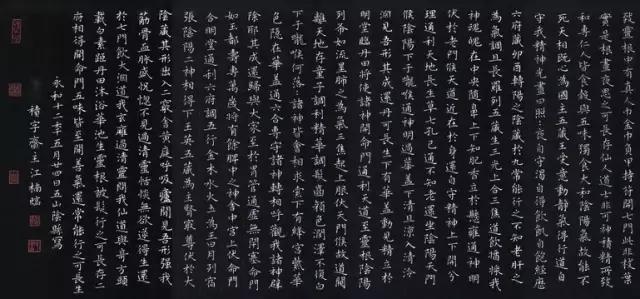 致靈根中有真人巾金巾負甲持符開七門此非枝葉
實是根晝夜思之可長存仙人道士非可神積精所致
和專仁人皆食穀與五味獨食大和陰陽氣故能不
死天相既心為國主五藏王受意動靜氣得行道自
守我精神光晝日照照夜自守渴自得飲飢自飽經歷
六府藏卯酉轉陽之陰藏於九常能行之不知老肝之
為氣調且長羅列五藏生三光上合三焦道飲醬漿我
神魂魄在中央隨鼻上下知肥香立於懸雍通神明
伏於老門候天道近在於身還自守精神上下開分
理通利天地長生草七孔已通不知老還坐陰陽天門
候陰陽下于嚨喉通神明過華蓋下清且涼入清泠
淵見吾形其成還丹可長生下有華蓋動見精立於
明堂臨丹田將使諸神開命門通利天道至靈根陰陽
列布如流星肺之為氣三焦起上服伏天門候故道闚
離天地存童子調利精華調髮齒顏色潤澤不復白
下于嚨喉何落落諸神皆會相求索下有絳宮紫華
色隱在華蓋通六合專守諸神轉相呼觀我諸神辟
除耶其成還歸與大家至於胃管通虛無閉塞命門
如玉都壽專萬歲將有餘脾中之神舍中宮上伏命門
合明堂通利六府調五行金木水火土為王日月列宿
張陰陽二神相得下玉英五藏為主腎最尊伏於大
陰藏其形出入二竅舍黃庭呼吸廬間見吾形強我
筋骨血脈盛恍惚不見過清靈恬惔無欲遂得生還
於七門飲大淵道我玄雍過清靈問我仙道與奇方頭
載白素距丹田沐浴華池生靈根被髮行之可長存二
府相得開命門五味皆至開善氣還常能行之可長生
永和十二年五月廿四日五山陰縣寫
齋主江楠